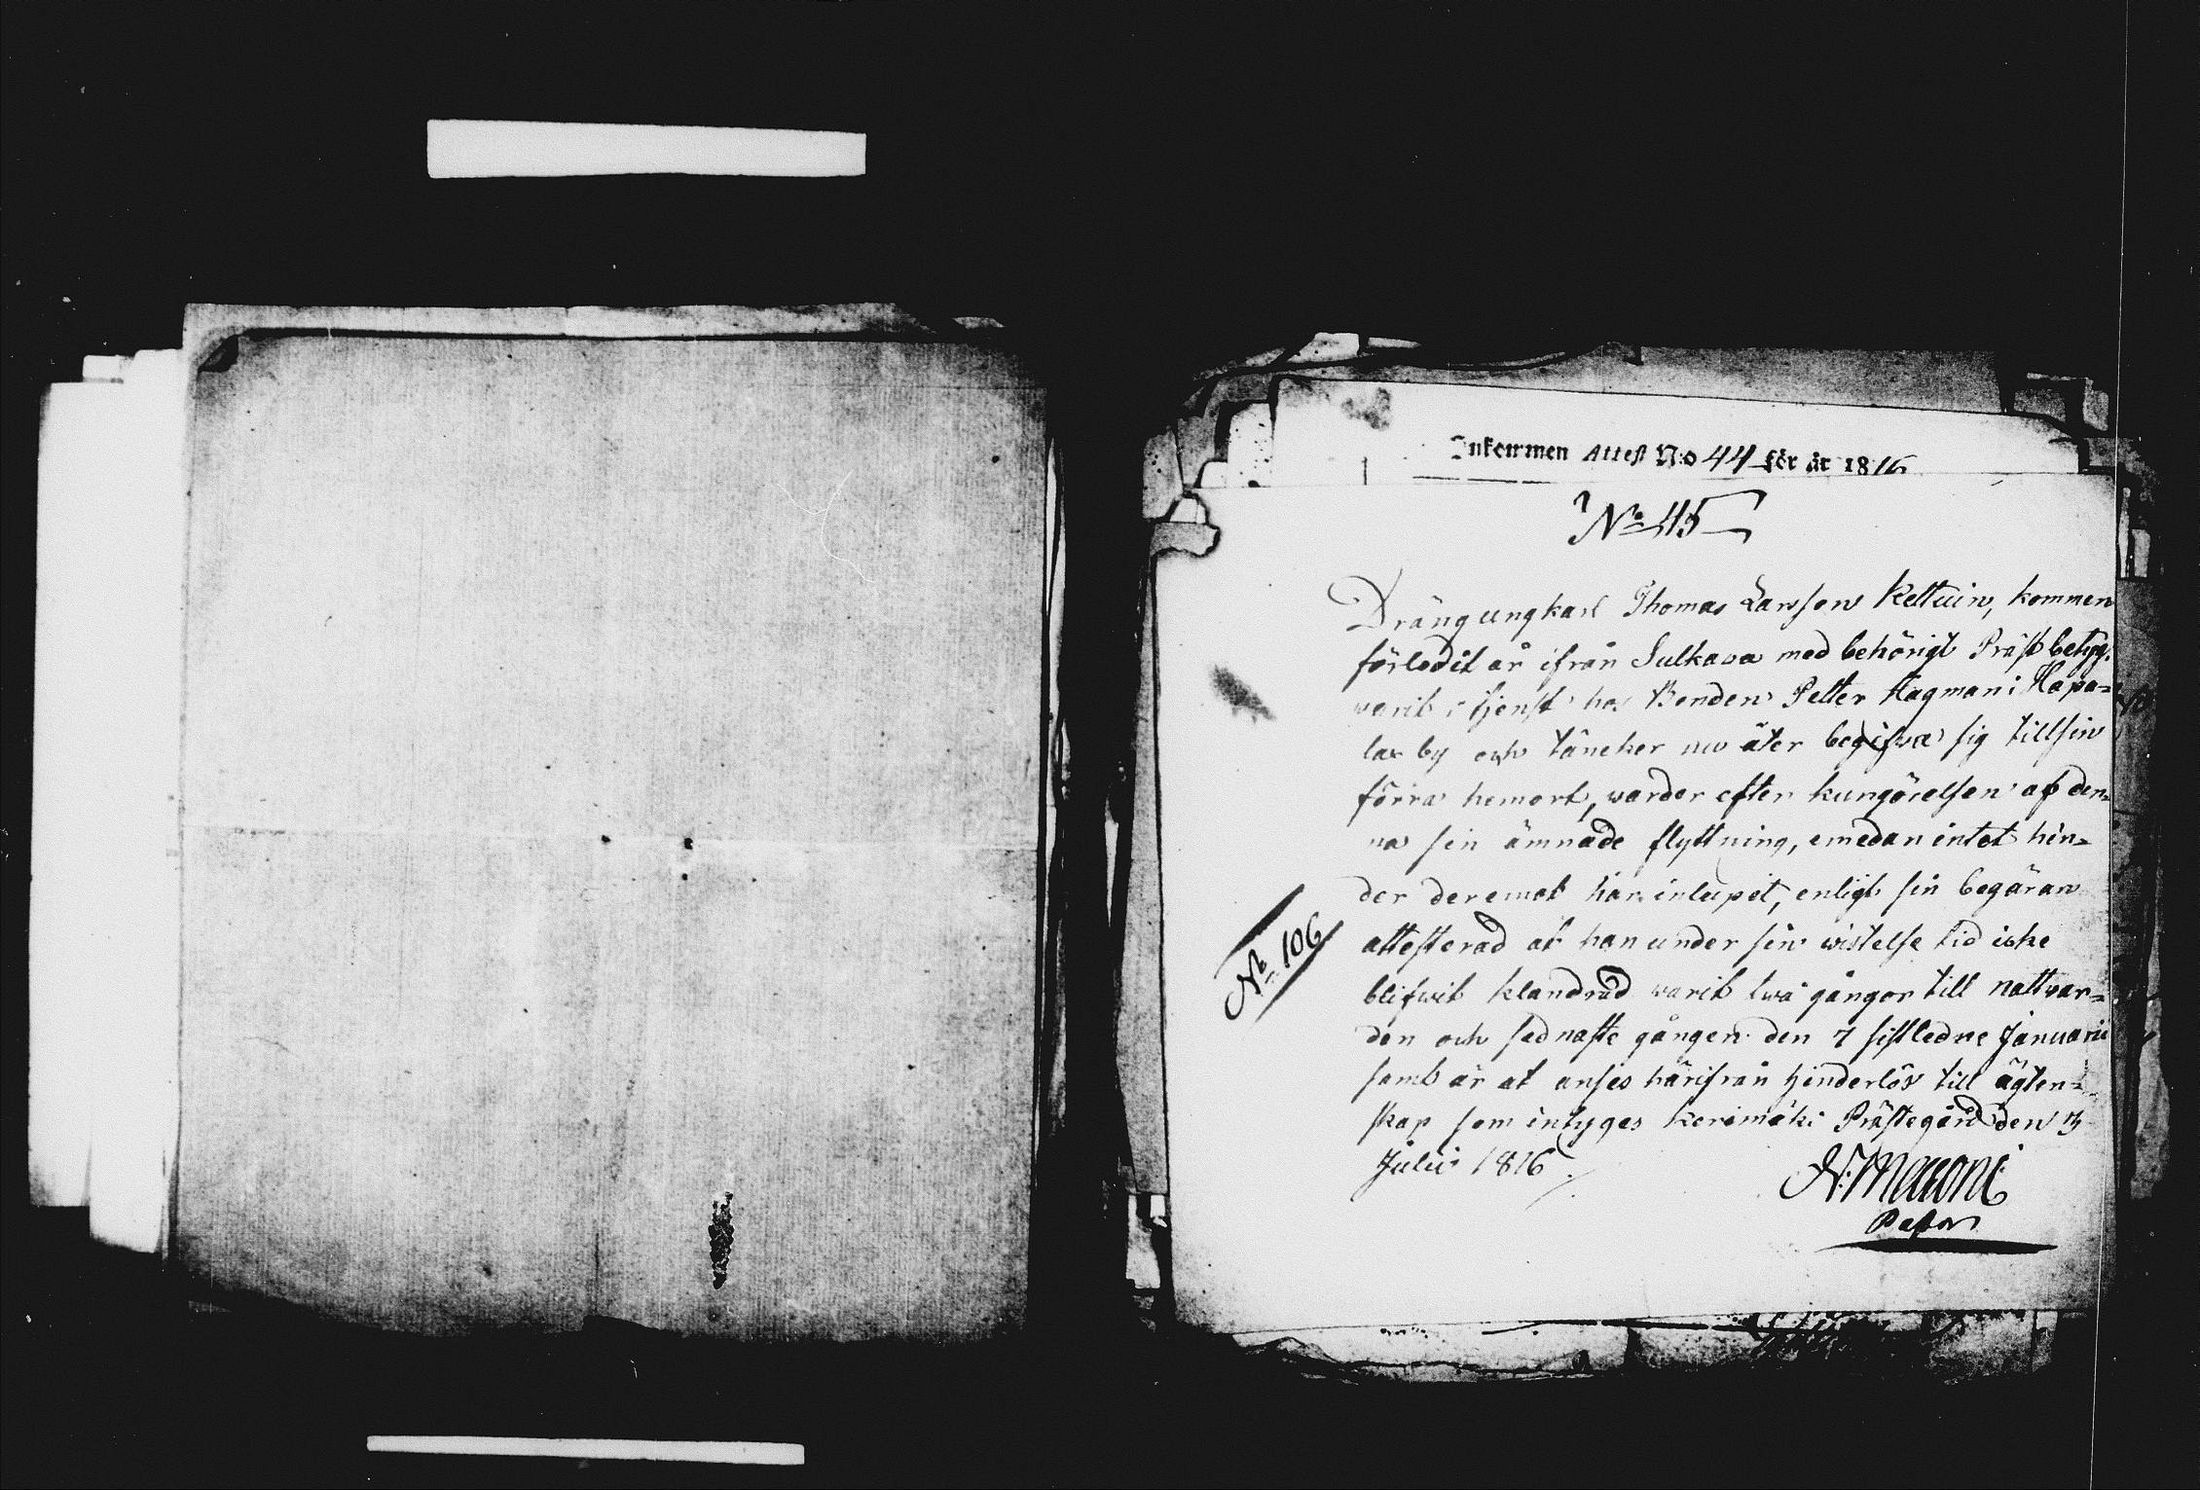 Inkommen Attest No 44 för år 1816
No 45
Drängungkarl Thomas Larsson Kettuin, kommen
förledit år ifrån Sulkava med behörigt Präst betyg,
varit i tjenst hos Bonden Petter Hagman i Hapa=
lax by och täncker nu åter begifva sig till sin
förra hemort, warder efter kungörelsen af den=
na sin ämnade flyttning, emedan intet hin=
der deremot har inlupit, enligt sin begäran
attesterad at han under sin wistelse tid icke
blifwit klandrad varit twå gångor till nattvar=
den och sednaste gången den 7 sistledne Januarii
samt är at anses härifrån hinderlös till ägten=
skap som intyges Kerimäki Prästegård den 3
Julii 1816
No 106